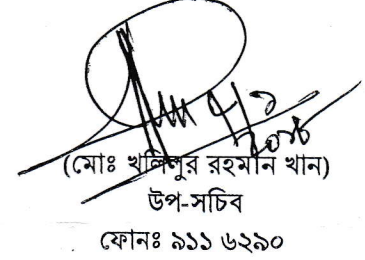 (মোঃ খলিলুর রহমান খান)
উপ-সচিব
ফোনঃ ৯১১ ৬২৯০